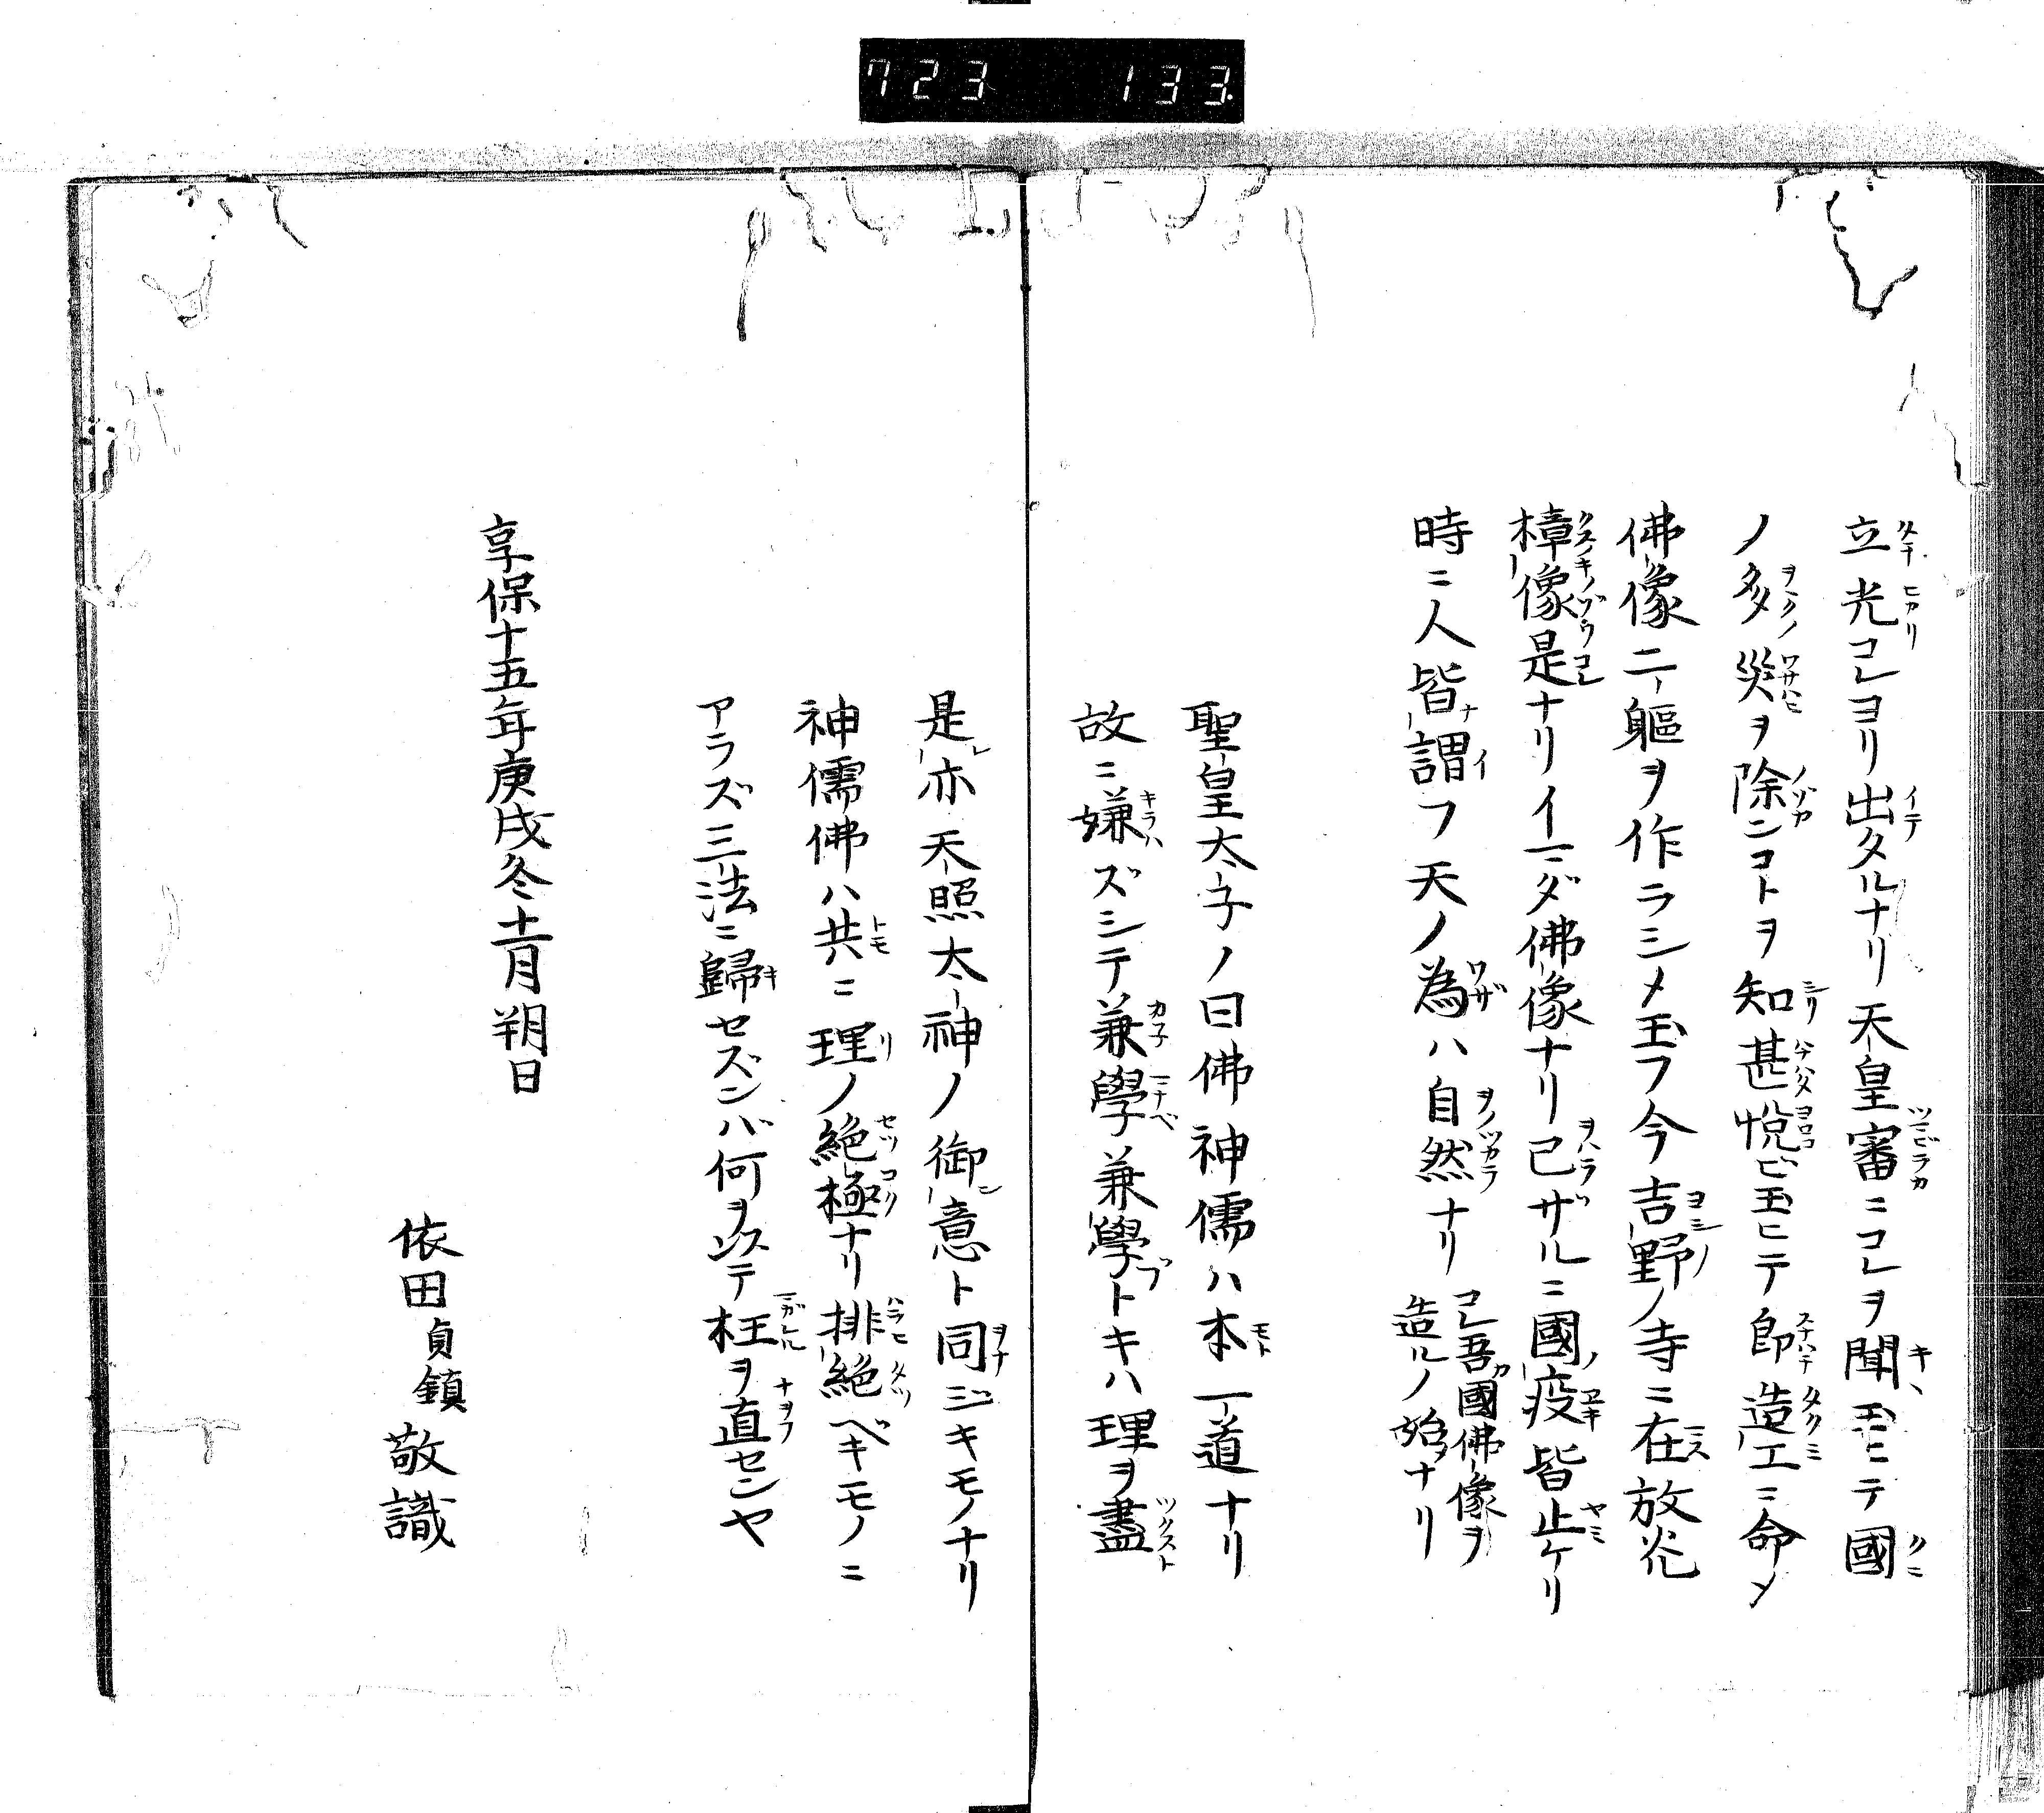 723 133
立光コレヨリ出タルナリ天皇審ニコレヲ聞玉ヒテ國
ノ多災ヲ除ンコトヲ知甚悦ビ玉ヒテ即造工ニ命メ
佛像二軀ヲ作ラシメ玉フ今吉野ノ寺ニ在放光
樟像是ナリイマダ佛像ナリ已ザルニ國疫皆止ケリ
時ニ人皆謂フ天ノ為ハ自然ナリ
コレ吾國佛像ヲ
造ルノ始ナリ
聖皇太子ノ曰佛神儒ハ本一道ナリ
故ニ嫌ズシテ兼學兼學トキハ理ヲ盡
是亦天照太神ノ御意ト同ジキモノナリ
神儒佛ハ共ニ理ノ絶極ナリ排絶ベキモノニ
アラズ三法ニ歸セズンバ何ヲ以テ枉ヲ直センヤ
享保十五年庚戌冬十一月朔日
依田貞鎮敬識